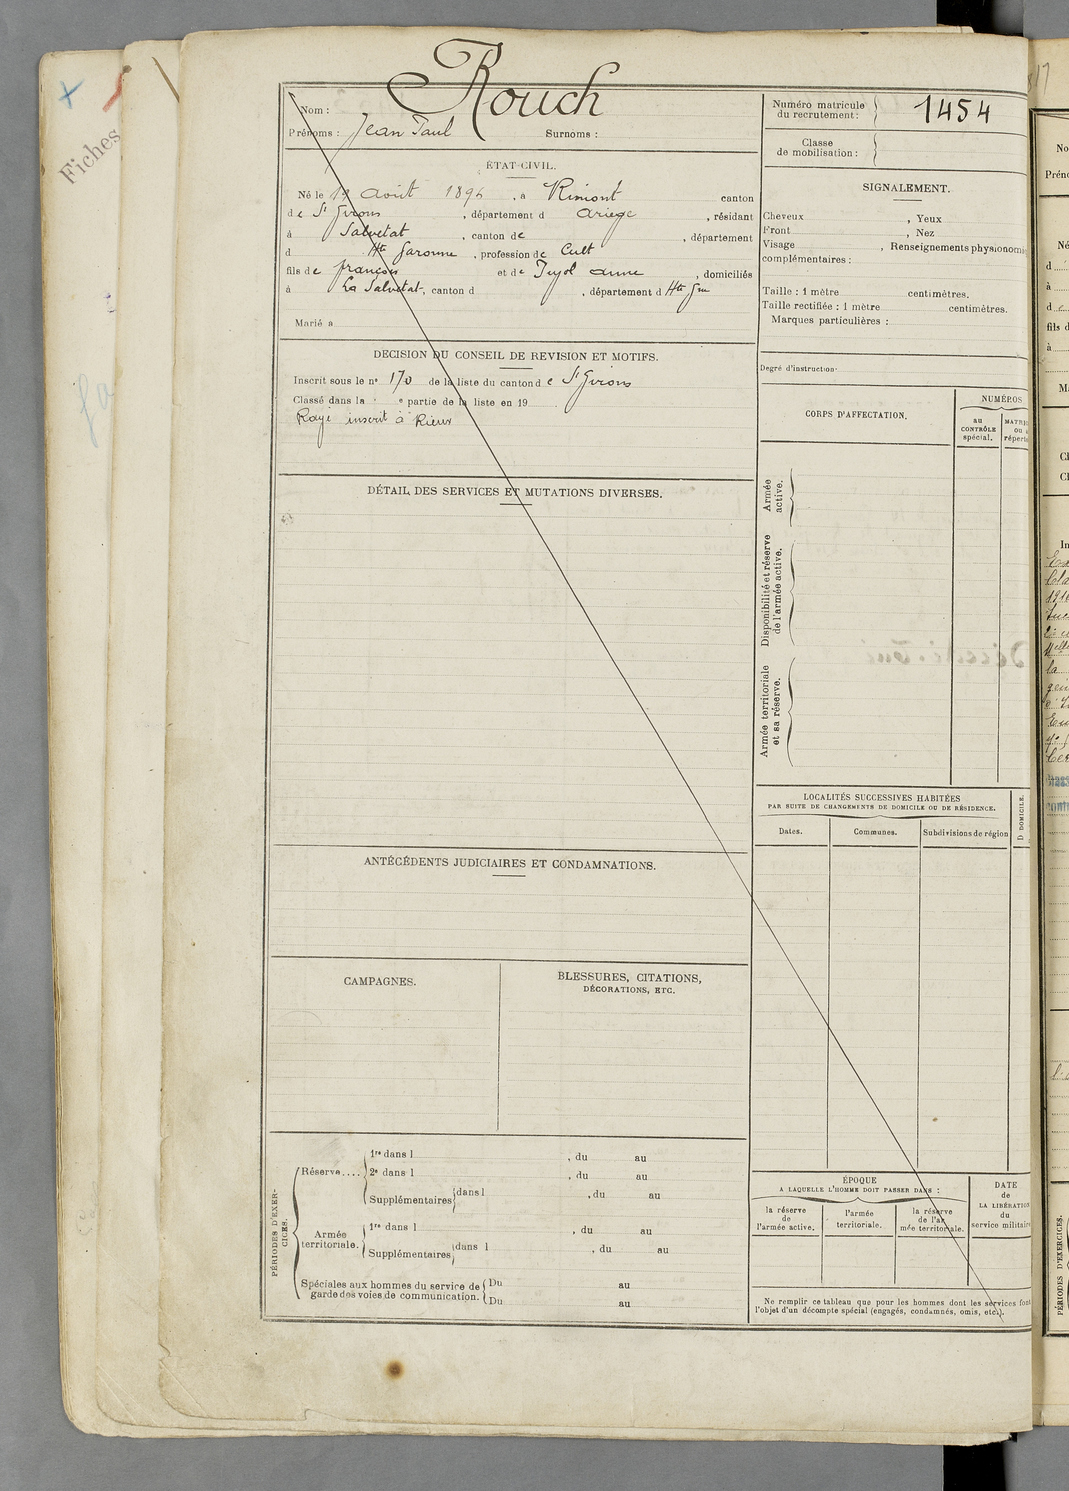 Fiches
Rouch
Nom :
Prénoms : Jean Paul Surnoms :
Numéro matricule
du recrutement : 1454
Classe
de mobilisation :
ÉTAT-CIVIL.
Né le 19 août 1896, à Rimont canton
de St Girons, département d Ariège, résidant
à Salvetat, canton de , département
d Hte Garonne, profession de Cult
fils de françois et de Pujol anne, domiciliés
à La Salvetat, canton d , département d Hte Gne
Marié à
SIGNALEMENT.
Cheveux , Yeux
Front , Nez
Visage , Renseignements physionomi
complémentaires :
Taille : 1 mètre centimètres.
Taille rectifiée : 1 mètre centimètres.
Marques particulières :
Degré d'instruction
DECISION DU CONSEIL DE REVISION ET MOTIFS.
Inscrit sous le n° 170 de la liste du canton de St Girons
Classé dans la e partie de la liste en 19
Rayé inscrit à Rieux
CORPS D'AFFECTATION.
NUMÉROS
au
CONTRÔLE
spécial.
MATRI
ou
réperto
Armée
active.
Disponibilité et réserve
de l'armée active.
Armée territoriale
et sa réserve.
DÉTAIL DES SERVICES ET MUTATIONS DIVERSES.
LOCALITÉS SUCCESSIVES HABITÉES
PAR SUITE DE CHANGEMENTS DE DOMICILE OU DE RÉSIDENCE.
Dates. Communes. Subdivisions de région
D DOMICILE.
ANTÉCÉDENTS JUDICIAIRES ET CONDAMNATIONS.
CAMPAGNES.
BLESSURES, CITATIONS,
DÉCORATIONS, ETC.
PÉRIODES D'EXER-
CICES.
Réserve....
1re dans l , du au
2e dans l , du au
Supplémentaires dans l , du au
Armée
territoriale.
1re dans l , du au
Supplémentaires dans l , du au
Spéciales aux hommes du service de
garde des voies de communication.
Du au
Du au
ÉPOQUE
A LAQUELLE L'HOMME DOIT PASSER DANS :
la réserve
de
l'armée active.
l'armée
territoriale.
la réserve
de l'ar
mée territoriale.
DATE
de
LA LIBÉRATION
du
service militaire
Ne remplir ce tableau que pour les hommes dont les services font
l'objet d'un décompte spécial (engagés, condamnés, omis, etc.).
PÉRIODES D'EXERCICES.